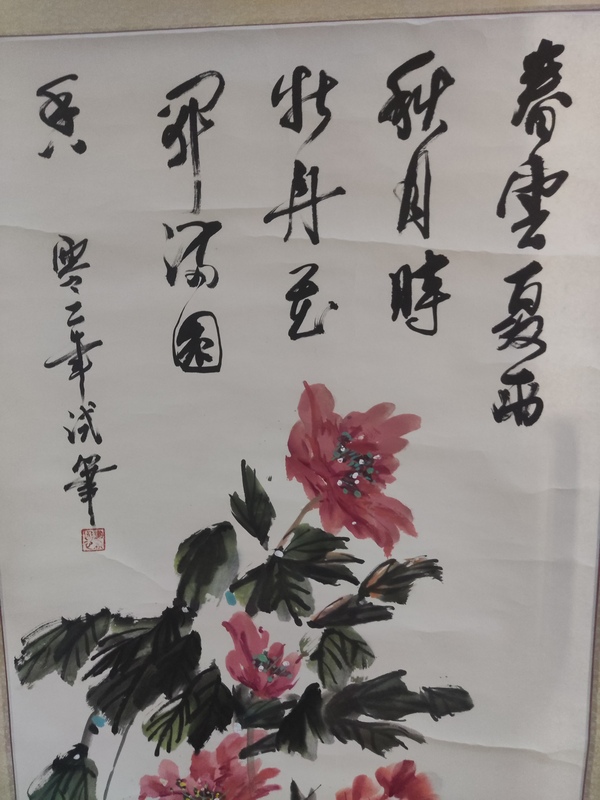 春雲夏雨
秋月時
牡丹花
開滿園
香
零二年試筆